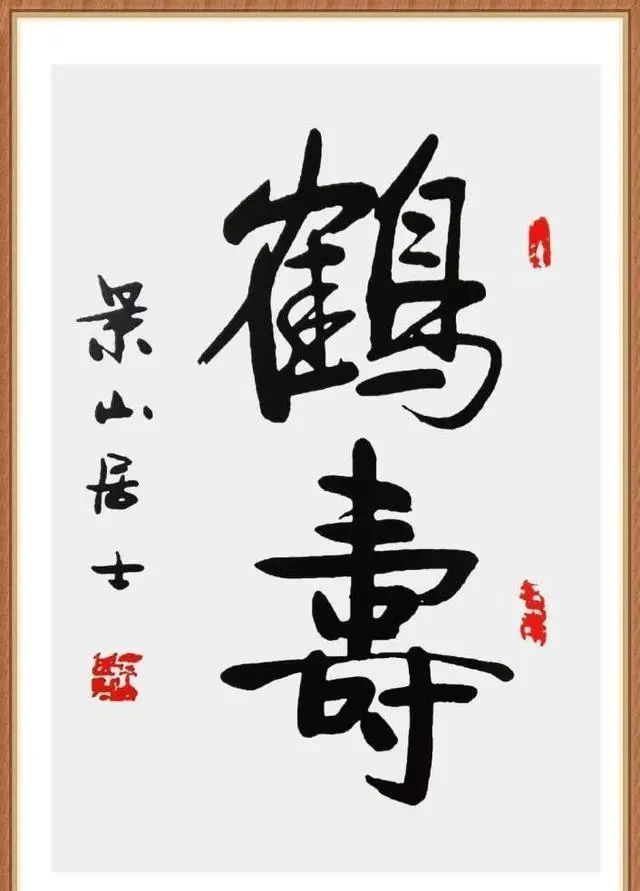 鶴壽
景山居士